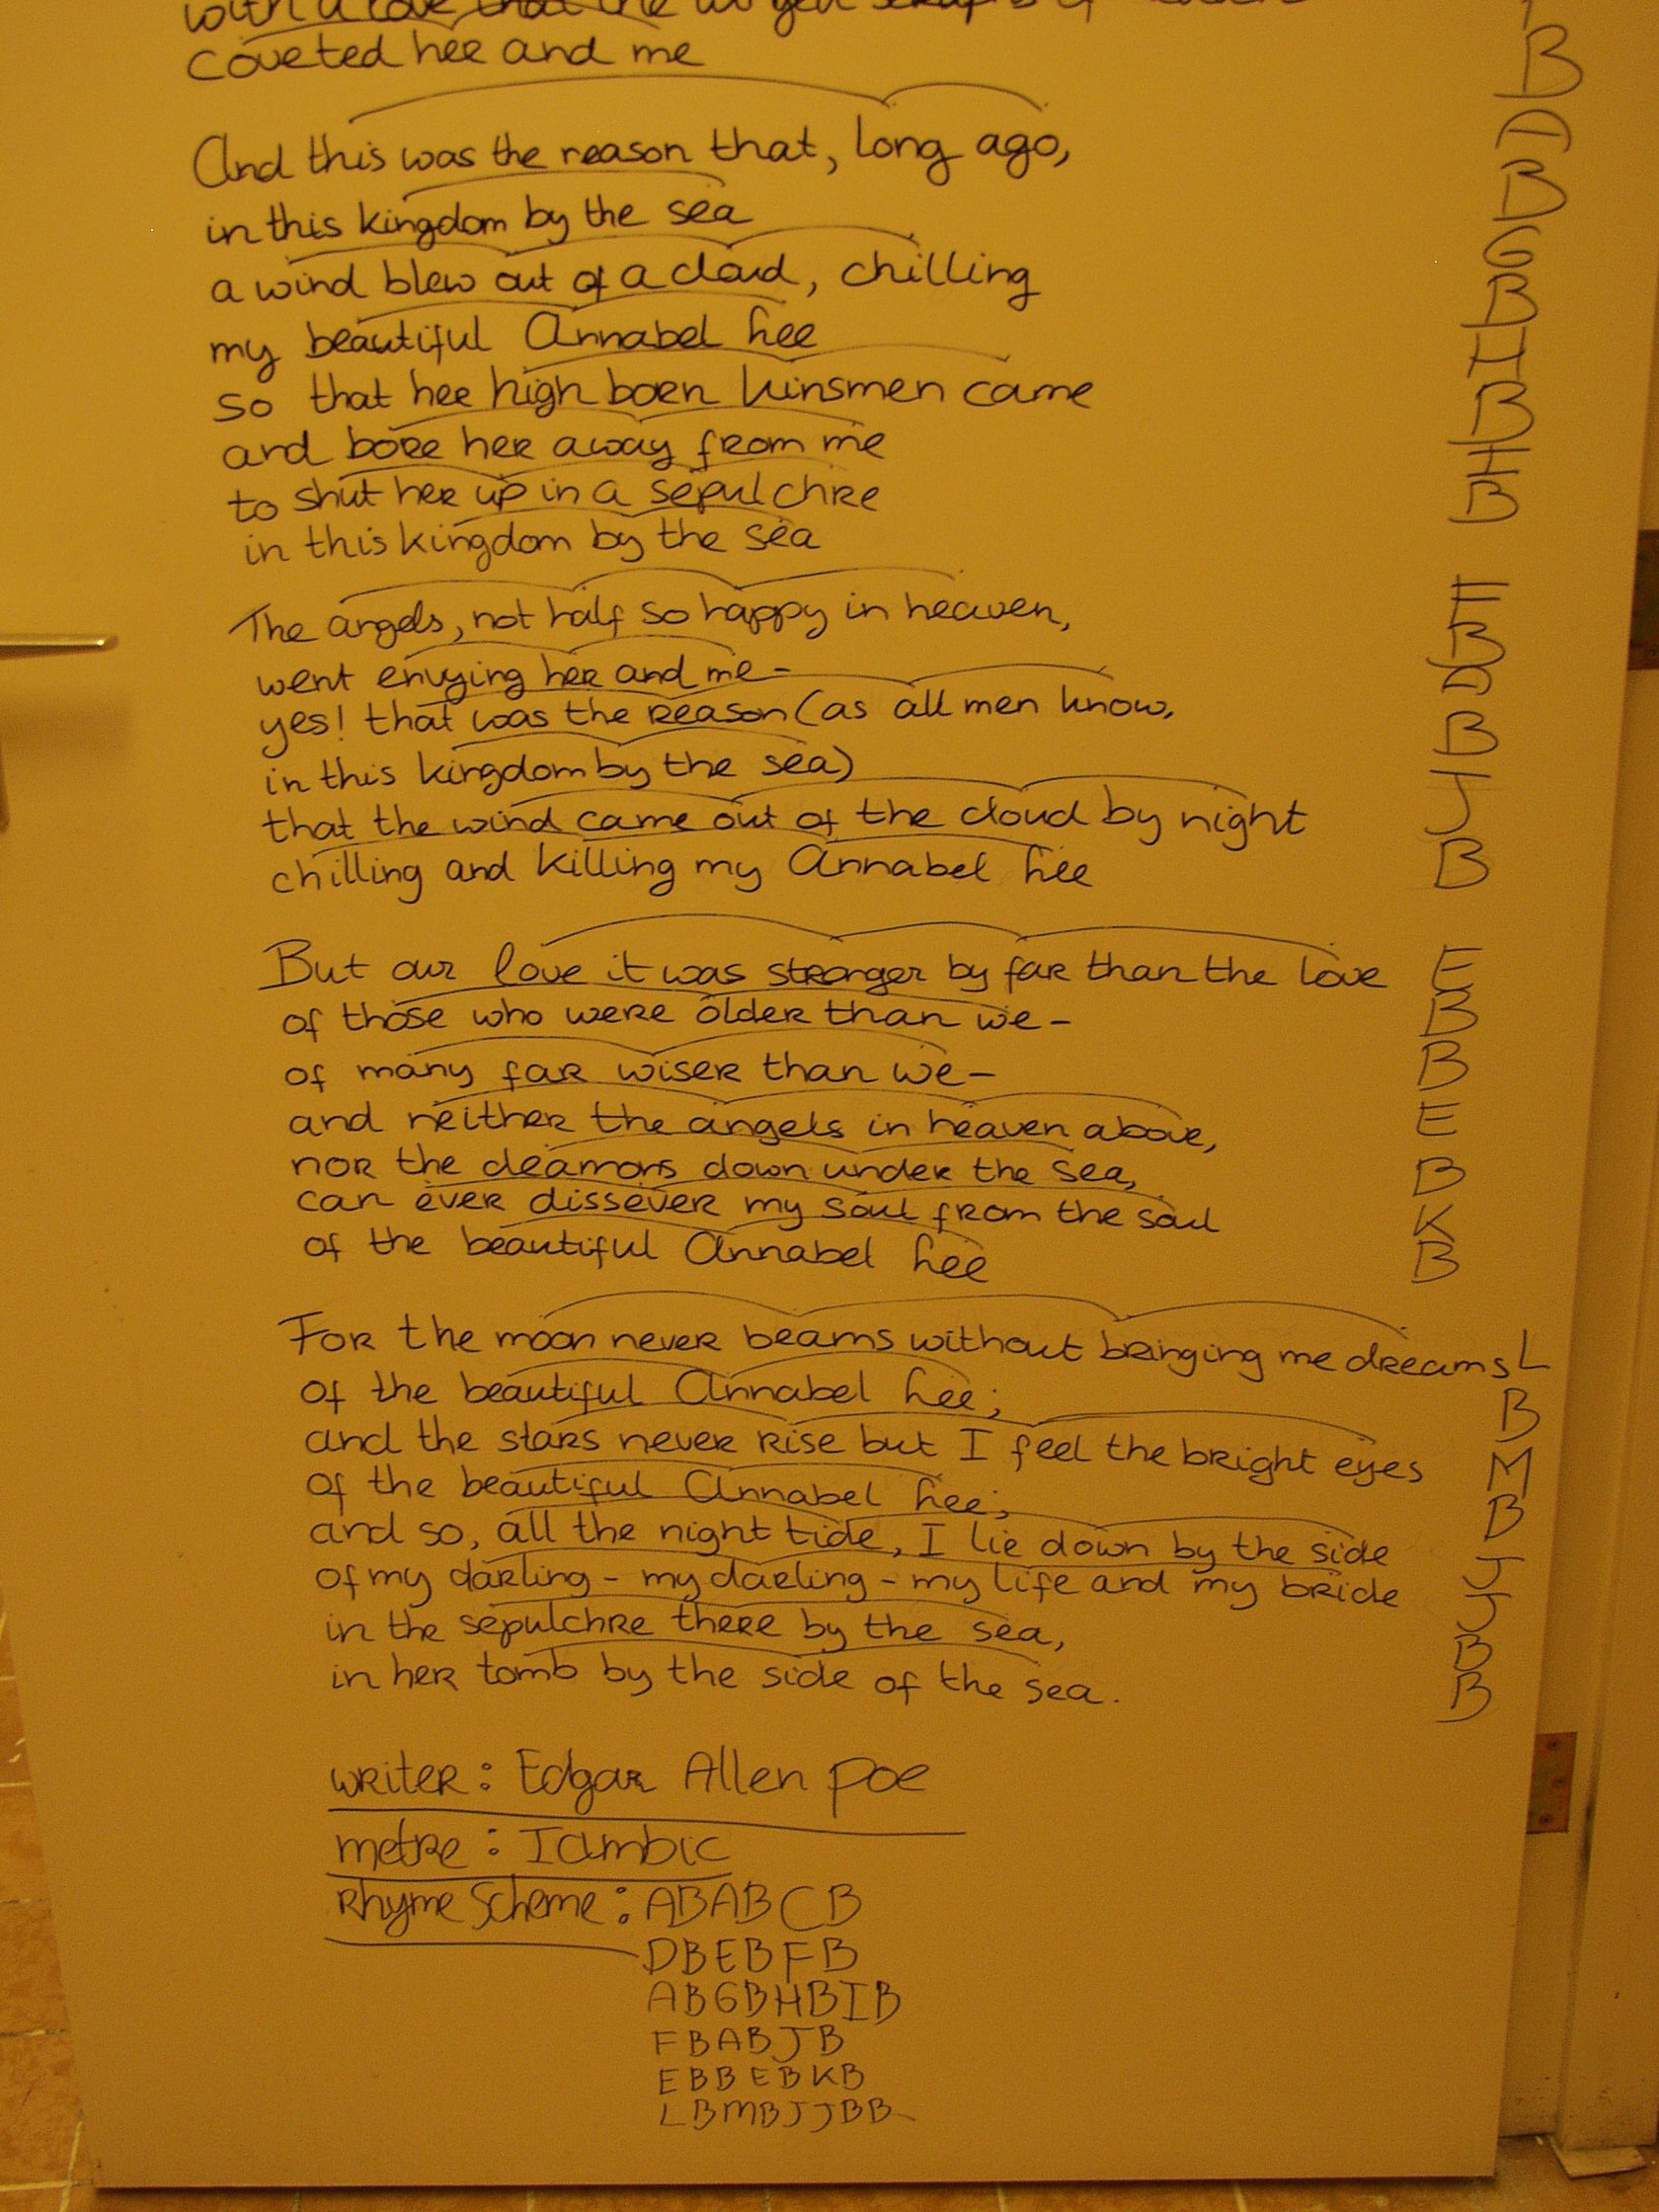 with a love that the winged seraphs of heaven
coveted her and me
B
And this was the reason that, long ago,
A
in this kingdom by the sea
B
a wind blew out of a cloud, chilling
G
my beautiful Annabel Lee
B
so that her high born kinsmen came
H
and bore her away from me
B
to shut her up in a sepulchre
I
in this kingdom by the sea
B
The angels, not half so happy in heaven,
F
went envying her and me-
B
yes! that was the reason (as all men know,
A
in this kingdom by the sea)
B
that the wind came out of the cloud by night
J
chilling and killing my Annabel Lee
B
But our love it was stronger by far than the love
E
of those who were older than we-
B
of many far wiser than we-
B
and neither the angels in heaven above,
E
nor the deamons down under the sea,
B
can ever dissever my soul from the soul
K
of the beautiful Annabel Lee
B
For the moon never beams without bringing me dreams
L
of the beautiful Annabel Lee;
B
and the stars never rise but I feel the bright eyes
M
of the beautiful Annabel Lee;
B
and so, all the night tide, I lie down by the side
J
of my darling - my darling - my life and my bride
J
in the sepulchre there by the sea,
B
in her tomb by the side of the sea.
B
writer: Edgar Allen Poe
metre: Iambic
Rhyme Scheme: ABABCB
DBEBFB
ABGBHBIB
FBABJB
EBBEBKB
LBMBJJBB